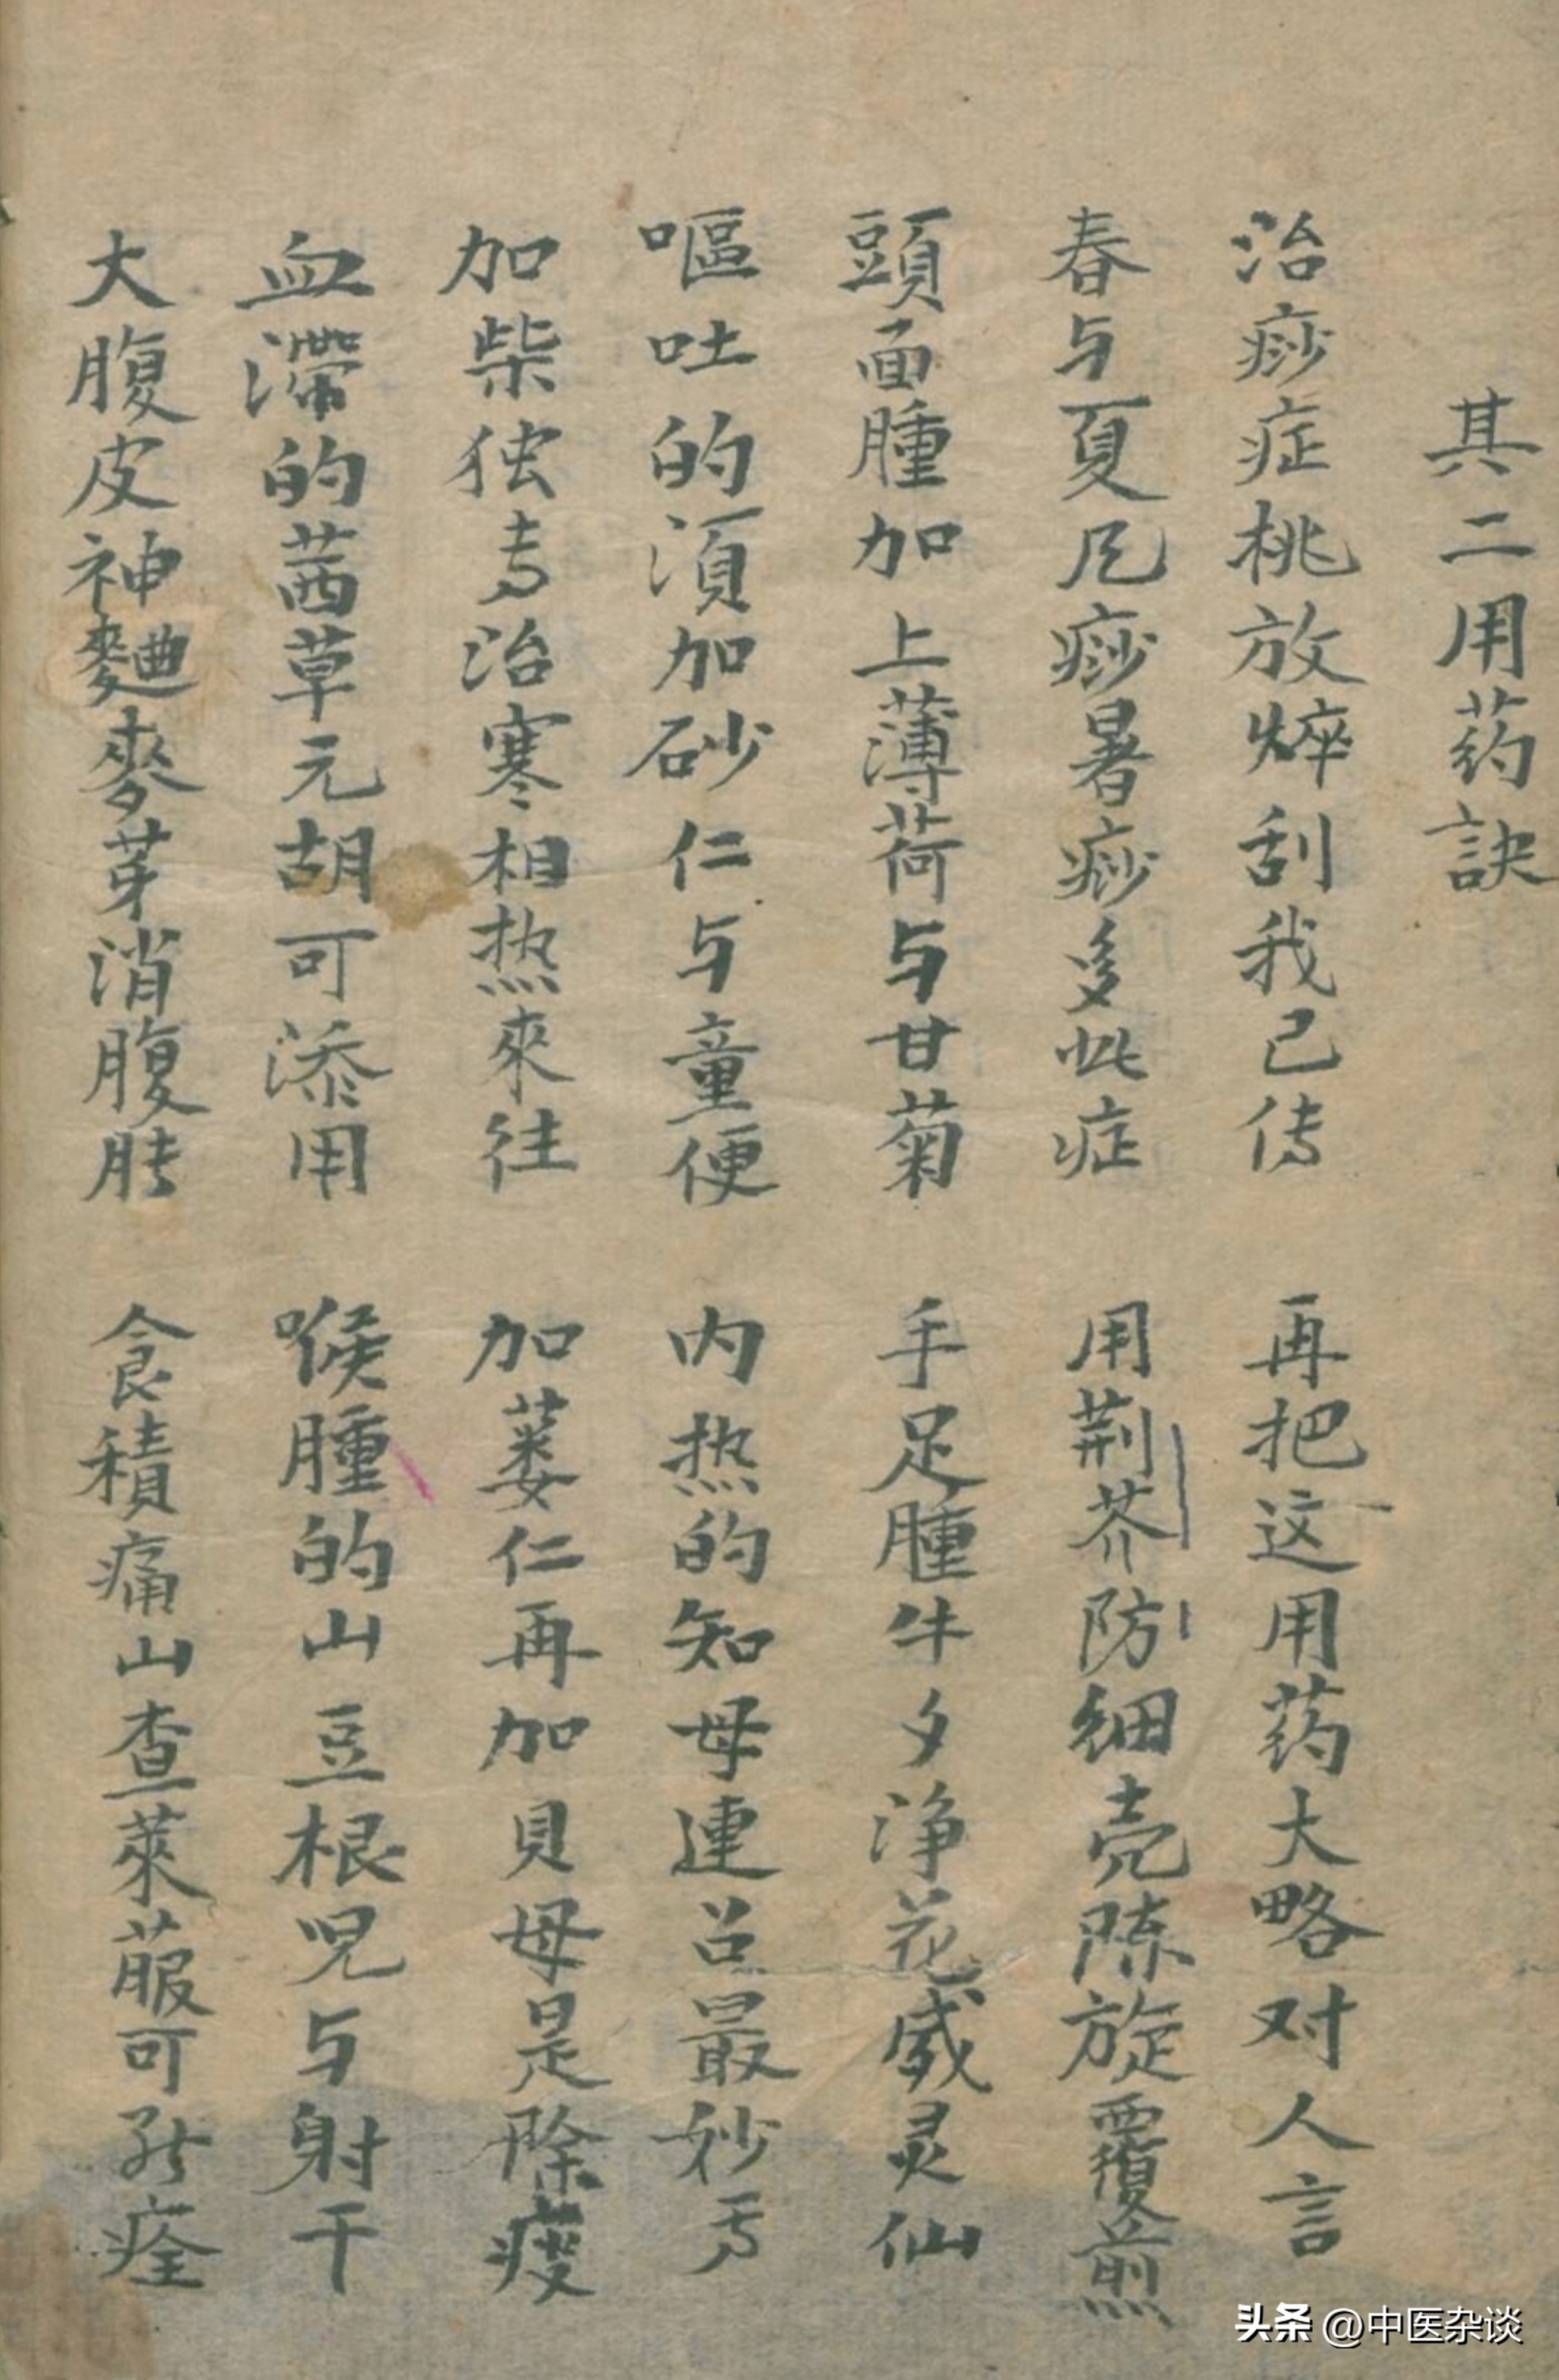 其二用药訣
治痧症桃放焠刮我已传
再把这用药大略对人言
春与夏凡痧暑痧多此症
用荆芥防细壳陈旋覆煎
頭面腫加上薄荷与甘菊
手足腫牛夕净花威灵仙
嘔吐的須加砂仁与童便
内热的知母連召最妙焉
加柴独专治寒相热來往
加蒌仁再加貝母是除痰
血滯的茜草元胡可添用
喉腫的山豆根児与射干
大腹皮神麯麥芽消腹胀
食積痛山查萊菔可能痊
头条 @中医杂谈